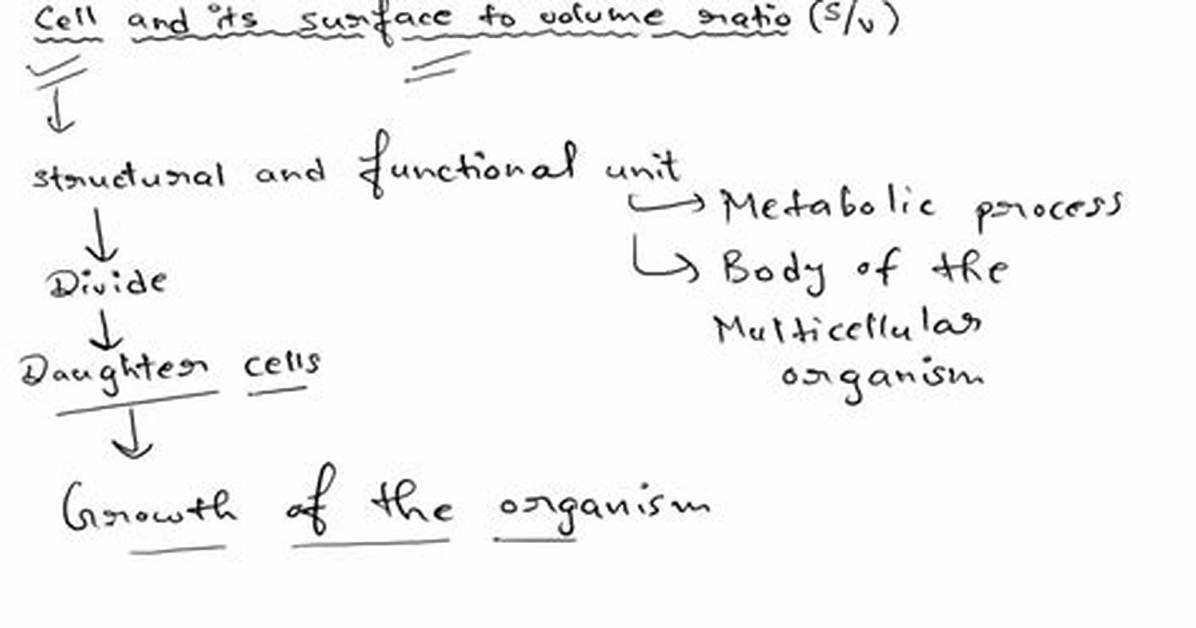 Cell and its surface to volume ratio (S/V)
structural and functional unit
Metabolic process
Body of the
Multicellular
organism
Divide
Daughter cells
Growth of the organism